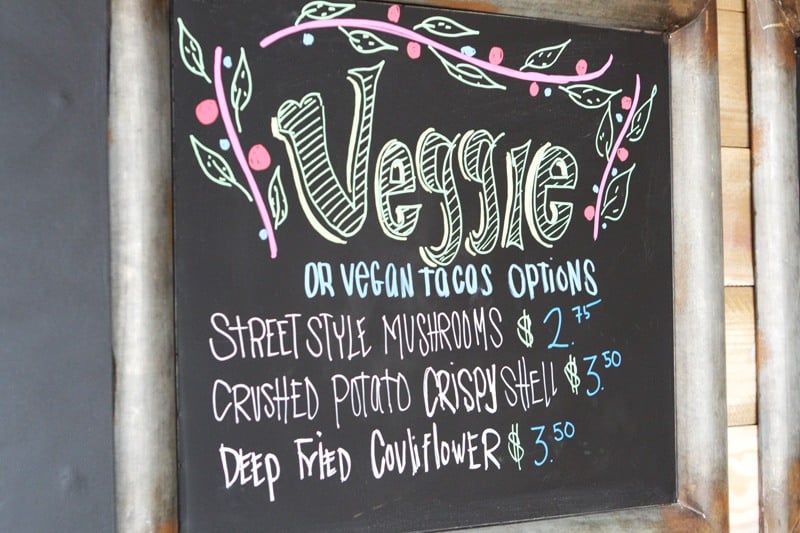 Veggie
OR VEGAN TACOS OPTIONS
STREET STYLE MUSHROOMS $2.75
CRUSHED POTATO CRISPY SHELL $3.50
DEEP FRIED COULIFLOWER $3.50